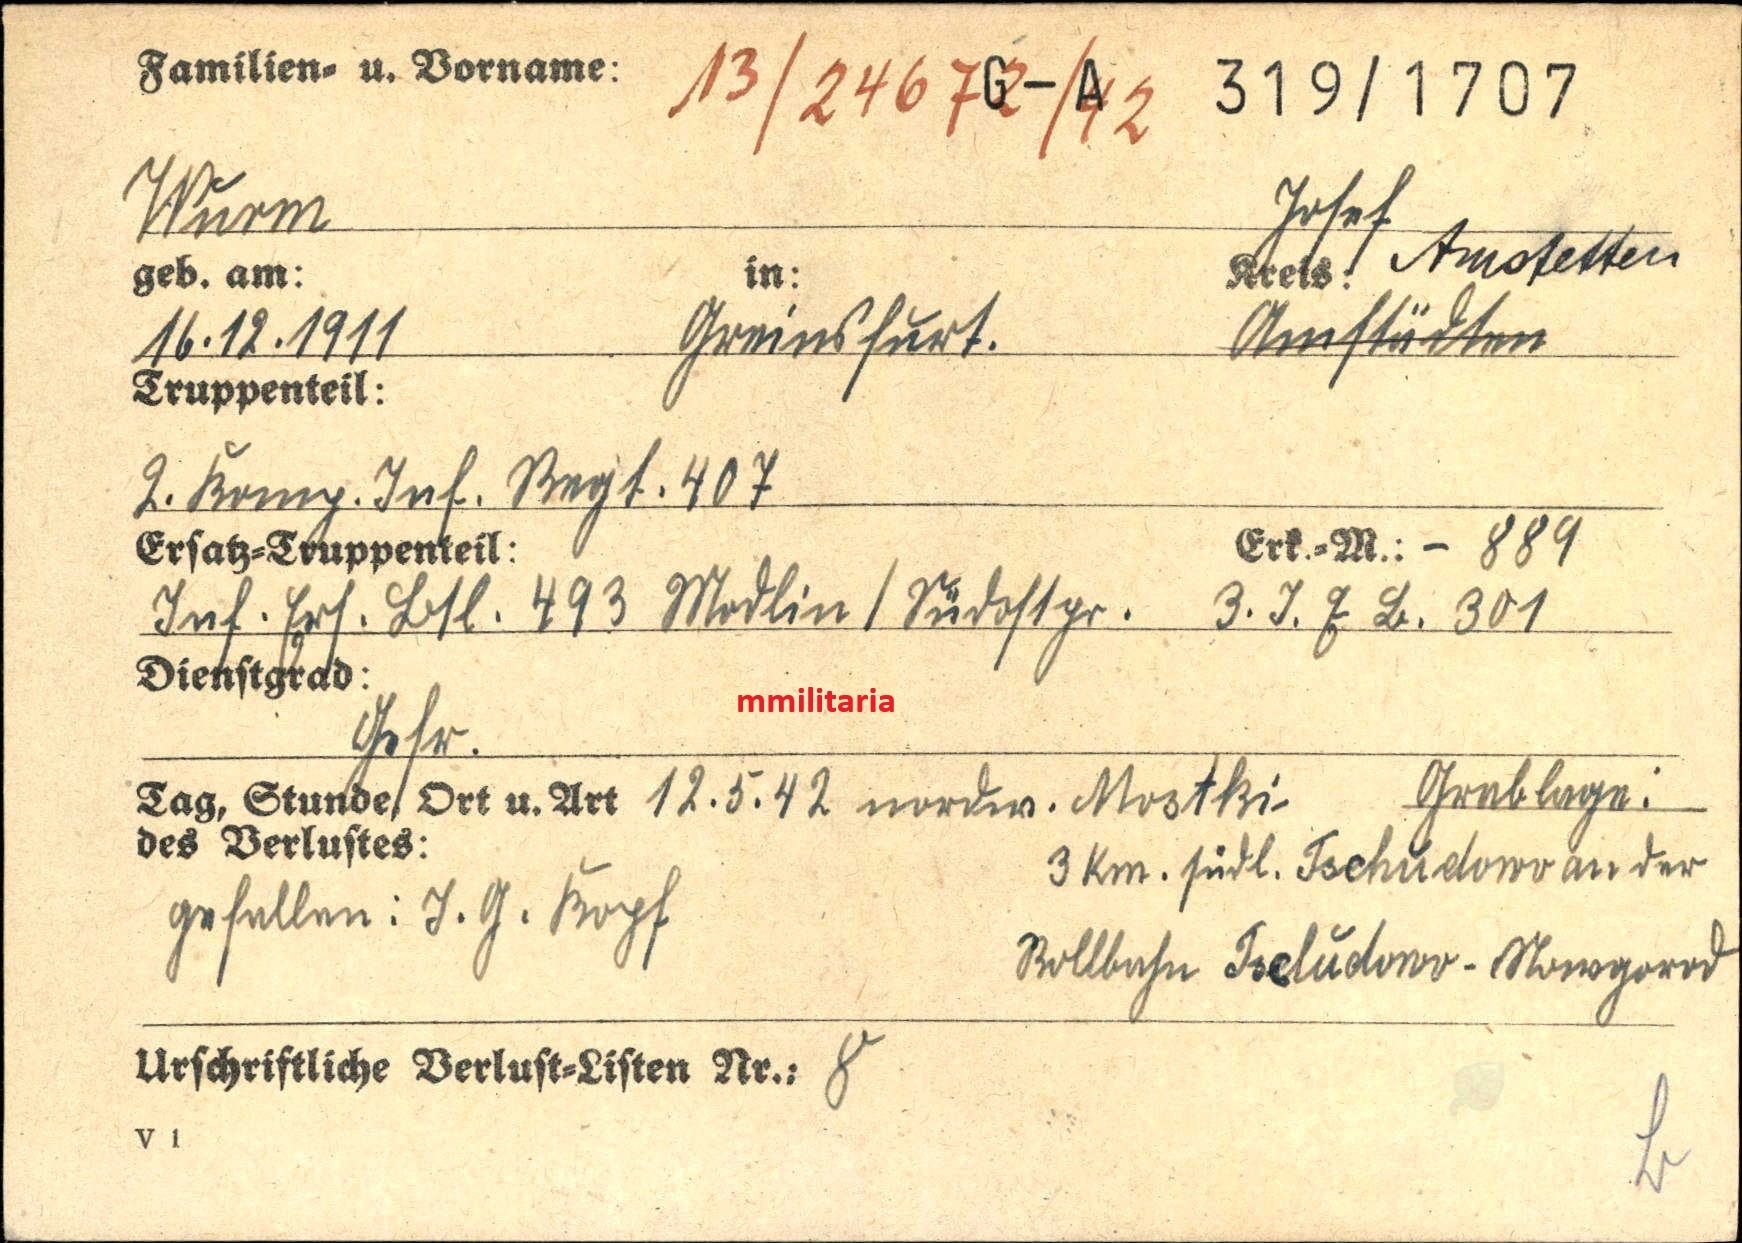 Familien- u. Vorname: 13/24672/42 G-A 319/1707
Wurm Josef
geb. am: in: Kreis: Amstetten
16.12.1911 Greinsfurt. Amstädten
Truppenteil:
2. Komp. Inf. Regt. 407
Ersatz-Truppenteil: Erk.-M.: - 889
Inf. Ers. Btl. 493 Modlin / Südostpr. 3. I. E. B. 301
Dienstgrad:
mmilitaria
Gefr.
Tag, Stunde, Ort u. Art 12.5.42 nordw. Mostki- Grablage:
des Verlustes: 3 km. südl. Tschudowo an der
gefallen: I. G. Kopf
Rollbahn Tschudowo - Nowgorod
Urschriftliche Verlust-Listen Nr.: 8
V 1